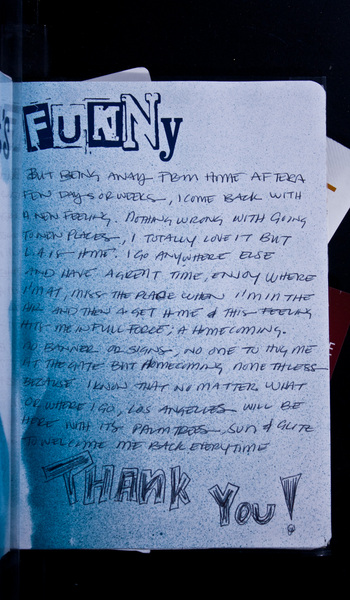 FUNNy
BUT BEING AWAY FROM HOME AFTER A
FEW DAYS OR WEEKS, I COME BACK WITH
A NEW FEELING. NOTHING WRONG WITH GOING
TO NEW PLACES, I TOTALLY LOVE IT BUT
L.A. IS HOME. I GO ANYWHERE ELSE
AND HAVE A GREAT TIME, ENJOY WHERE
I'M AT, MISS THE PLACE WHEN I'M IN THE
AIR AND THEN I GET HOME & THIS FEELING
HITS ME IN FULL FORCE; A HOMECOMING.
NO BANNER OR SIGNS, NO ONE TO HUG ME
AT THE GATE BUT HOMECOMING NONETHELESS
BECAUSE I KNOW THAT NO MATTER WHAT
OR WHERE I GO, LOS ANGELES WILL BE
HERE WITH ITS PALM TREES, SUN & GLITZ
TO WELCOME ME BACK EVERYTIME
THANK YOU!